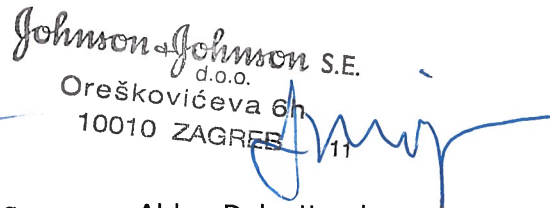 Johnson & Johnson S.E.
d.o.o.
Oreškovićeva 6h
10010 ZAGREB
11